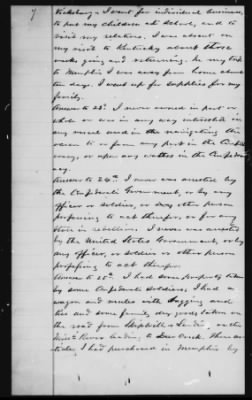 7
Vicksburg. I went for individual business,
to put my children at School, and to
visit my relations. I was absent on
my visit to Kentucky about three
weeks going and returning. In my trip
to Memphis I was away from home about
ten days. I went up for supplies for my
family.
Answer to 23d. I never owned in part or
whole or was in any way interested in
any vessel used in the navigating the
ocean to or from any port in the
or upon any waters in the
Answer to 24th. I never was arrested by
the Confederate Government, or by any
officer or soldier, or any other person
professing to act therefor, or for any
State in rebellion. I never was arrested
by the United States Government, or by
any officer, or soldier or other person
professing to act therefor.
Answer to 25th. I had some property taken
by some Confederate soldiers, I had a
wagon and mules with bagging and
ties and some family dry goods taken on
the road from Landing, on the
River leading to Creek. The
I had purchased in Memphis by